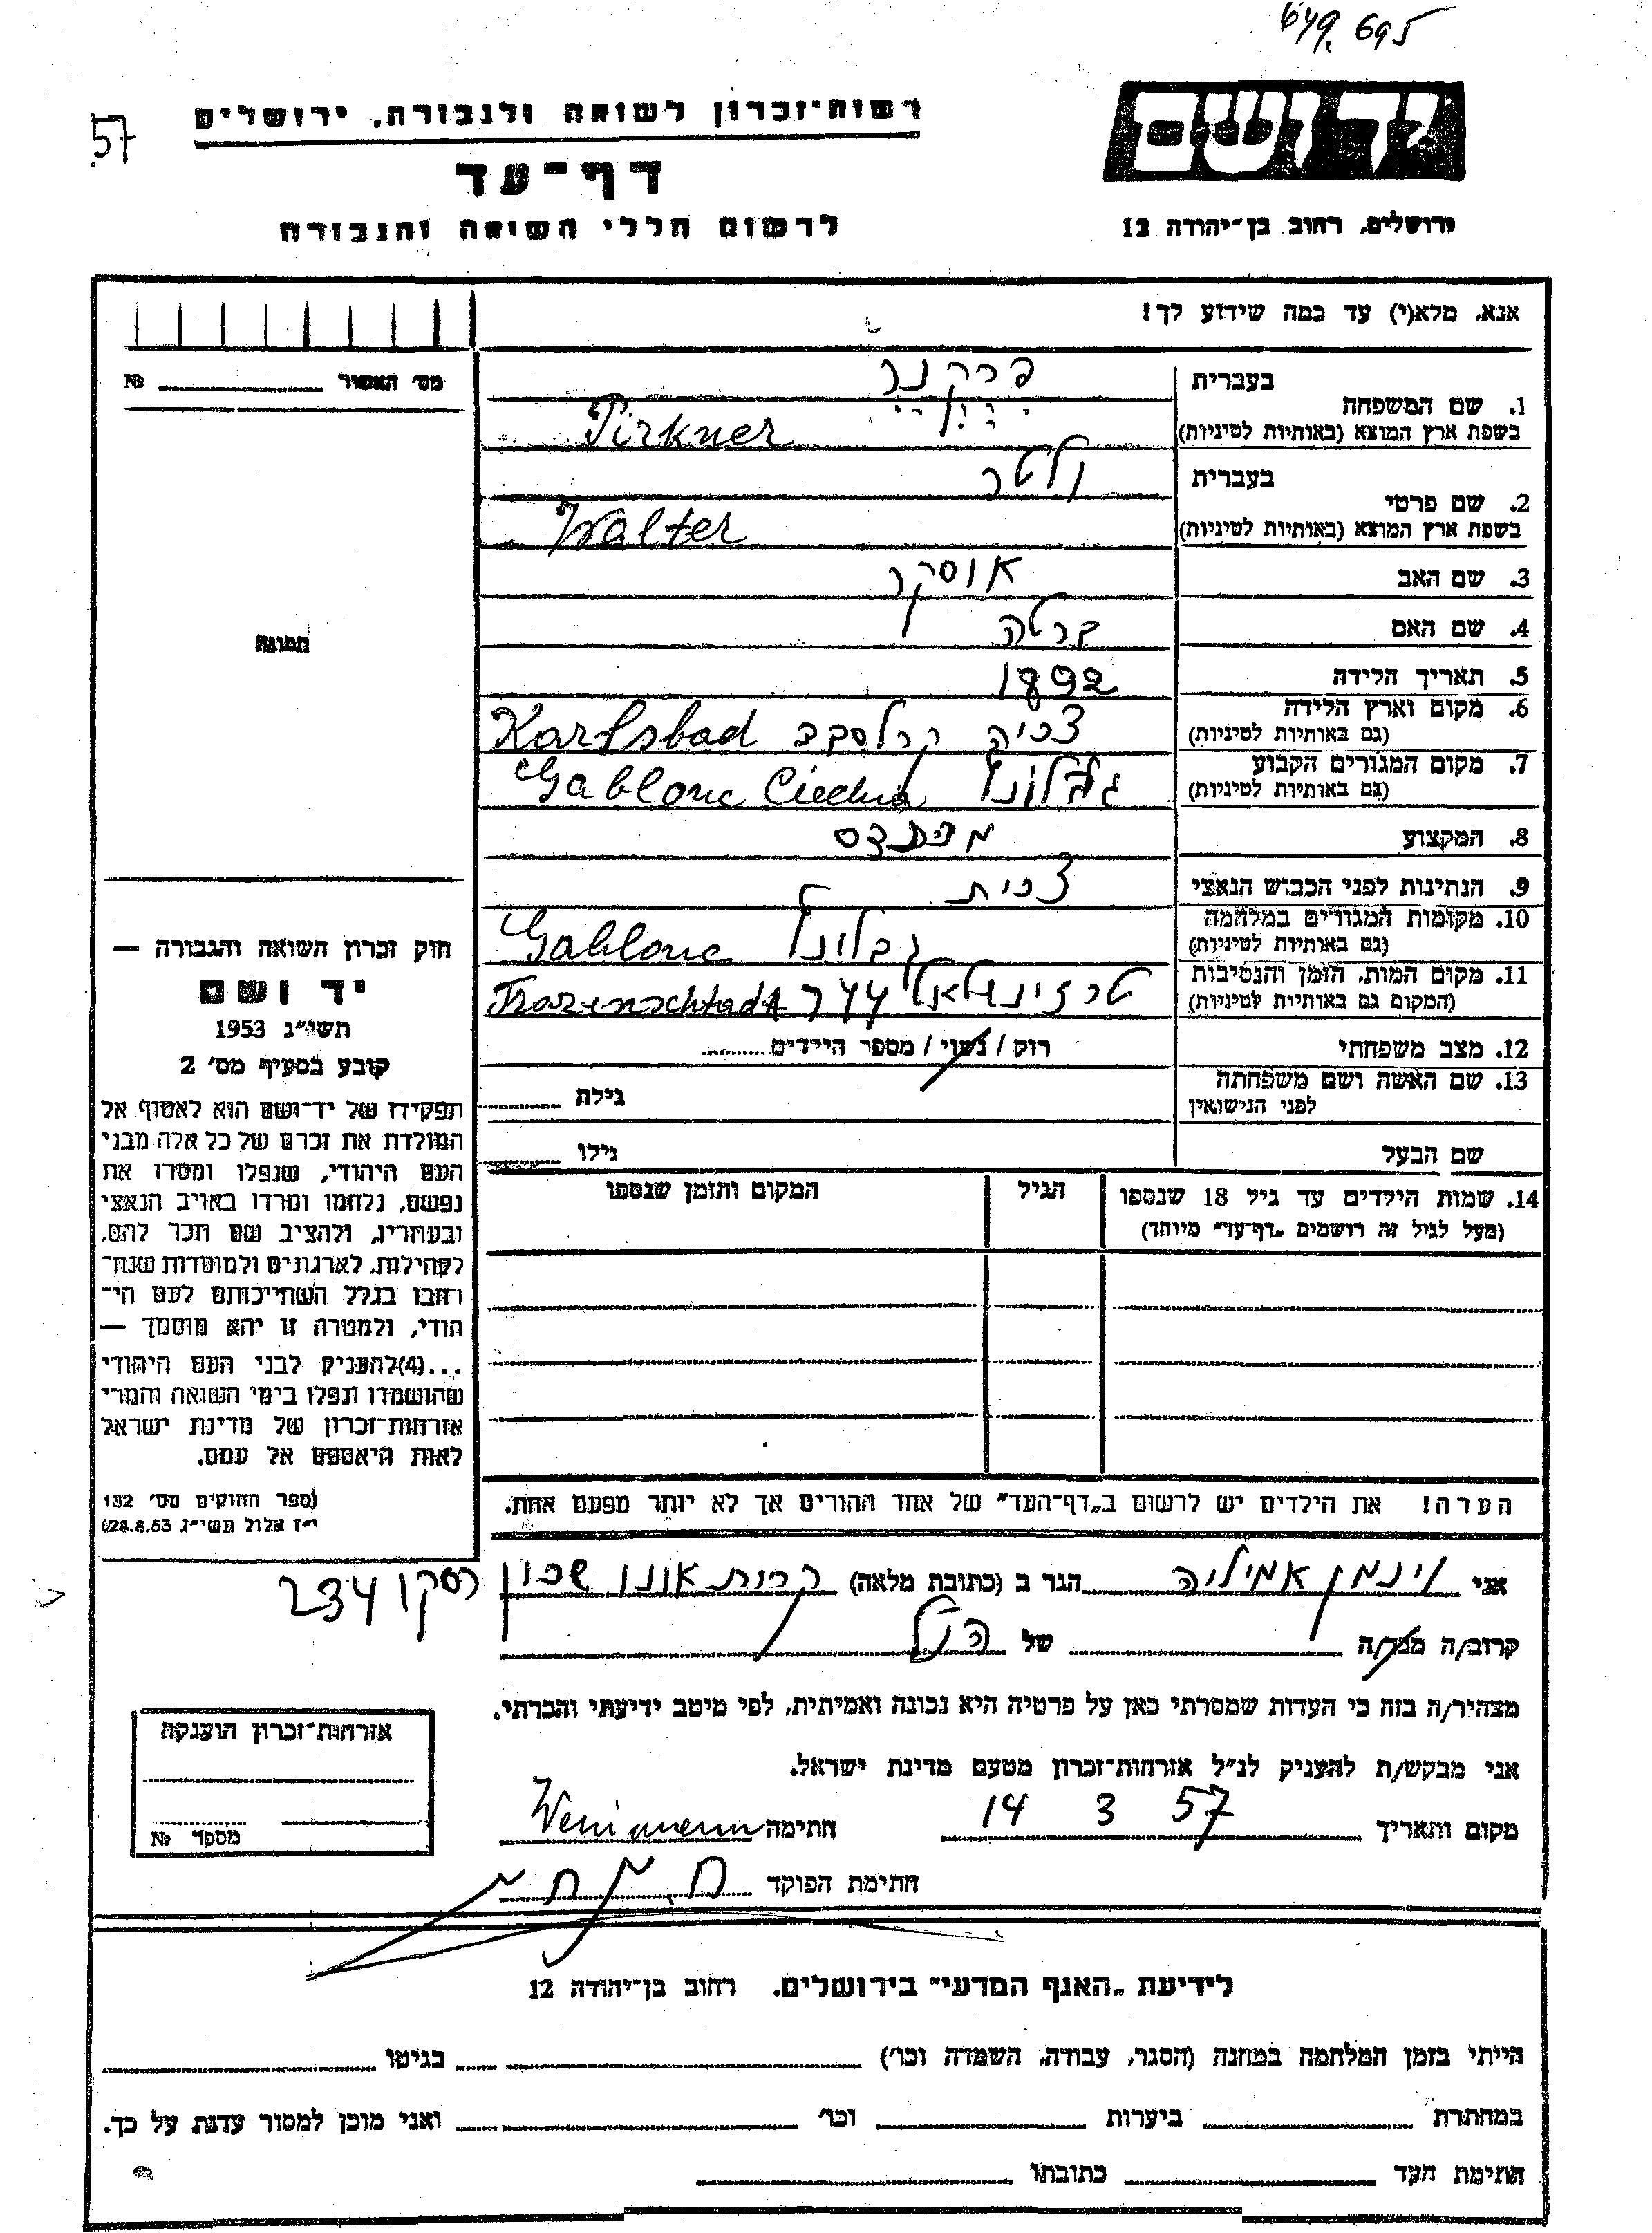 649,695
57
רשות־זכרון לשואה ולגבורה, ירושלים
יד ושם
דף־עד
ירושלים, רחוב בן־יהודה 12
לרשום חללי השואה והגבורה
אנא, מלא(י) עד כמה שידוע לך!
מס׳ האשור №
1. שם המשפחה
בעברית פרקנר
בשפת ארץ המוצא (באותיות לטיניות) Pirkner
2. שם פרטי
בעברית ולטר
בשפת ארץ המוצא (באותיות לטיניות) Walter
3. שם האב אוסקר
4. שם האם ברטה
5. תאריך הלידה 1892
6. מקום וארץ הלידה צכיה קרלסבד Karlsbad
(גם באותיות לטיניות)
7. מקום המגורים הקבוע גבלונץ Gablonc
(גם באותיות לטיניות)
8. המקצוע
9. הנתינות לפני הכבוש הנאצי צכית
10. מקומות המגורים במלחמה גבלונץ Gablonc
(גם באותיות לטיניות)
11. מקום המות, הזמן והנסיבות 44
(המקום גם באותיות לטיניות)
12. מצב משפחתי רוק / נשוי / מספר הילדים
13. שם האשה ושם משפחתה גילה
לפני הנישואין
שם הבעל גילו
14. שמות הילדים עד גיל 18 שנספו הגיל המקום והזמן שנספו
(מעל לגיל זה רושמים „דף־עד״ מיוחד)
הערה! את הילדים יש לרשום ב„דף־העד״ של אחד ההורים אך לא יותר מפעם אחת.
תמונה
חוק זכרון השואה והגבורה —
יד ושם
תשי״ג 1953
קובע בסעיף מס׳ 2
תפקידו של יד־ושם הוא לאסוף אל
המולדת את זכרם של כל אלה מבני
העם היהודי, שנפלו ומסרו את
נפשם, נלחמו ומרדו באויב הנאצי
ובעוזריו, ולהציב שם וזכר להם,
לקהילות, לארגונים ולמוסדות שנח־
רבו בגלל השתייכותם לעם הי־
הודי, ולמטרה זו יהא מוסמך —
...(4) להעניק לבני העם היהודי
שהושמדו ונפלו בימי השואה והמרי
אזרחות־זכרון של מדינת ישראל
לאות היאספם אל עמם.
(ספר החוקים מס׳ 132
י״ז אלול תשי״ג 28.8.53)
אני וינמן אמיליה הגר ב (כתובת מלאה) קרית אונו שכון רסקו 234
קרוב/ה מכר/ה של הנ״ל
מצהיר/ה בזה כי העדות שמסרתי כאן על פרטיה היא נכונה ואמיתית, לפי מיטב ידיעתי והכרתי.
אני מבקש/ת להעניק לנ״ל אזרחות־זכרון מטעם מדינת ישראל.
מקום ותאריך 14 3 57 חתימה
חתימת הפוקד
אזרחות־זכרון הוענקה
מספר №
לידיעת „האגף המדעי״ בירושלים, רחוב בן־יהודה 12
הייתי בזמן המלחמה במחנה (הסגר, עבודה, השמדה וכו׳) בגיטו
במחתרת ביערות וכו׳ ואני מוכן למסור עדות על כך.
חתימת העד כתובתו